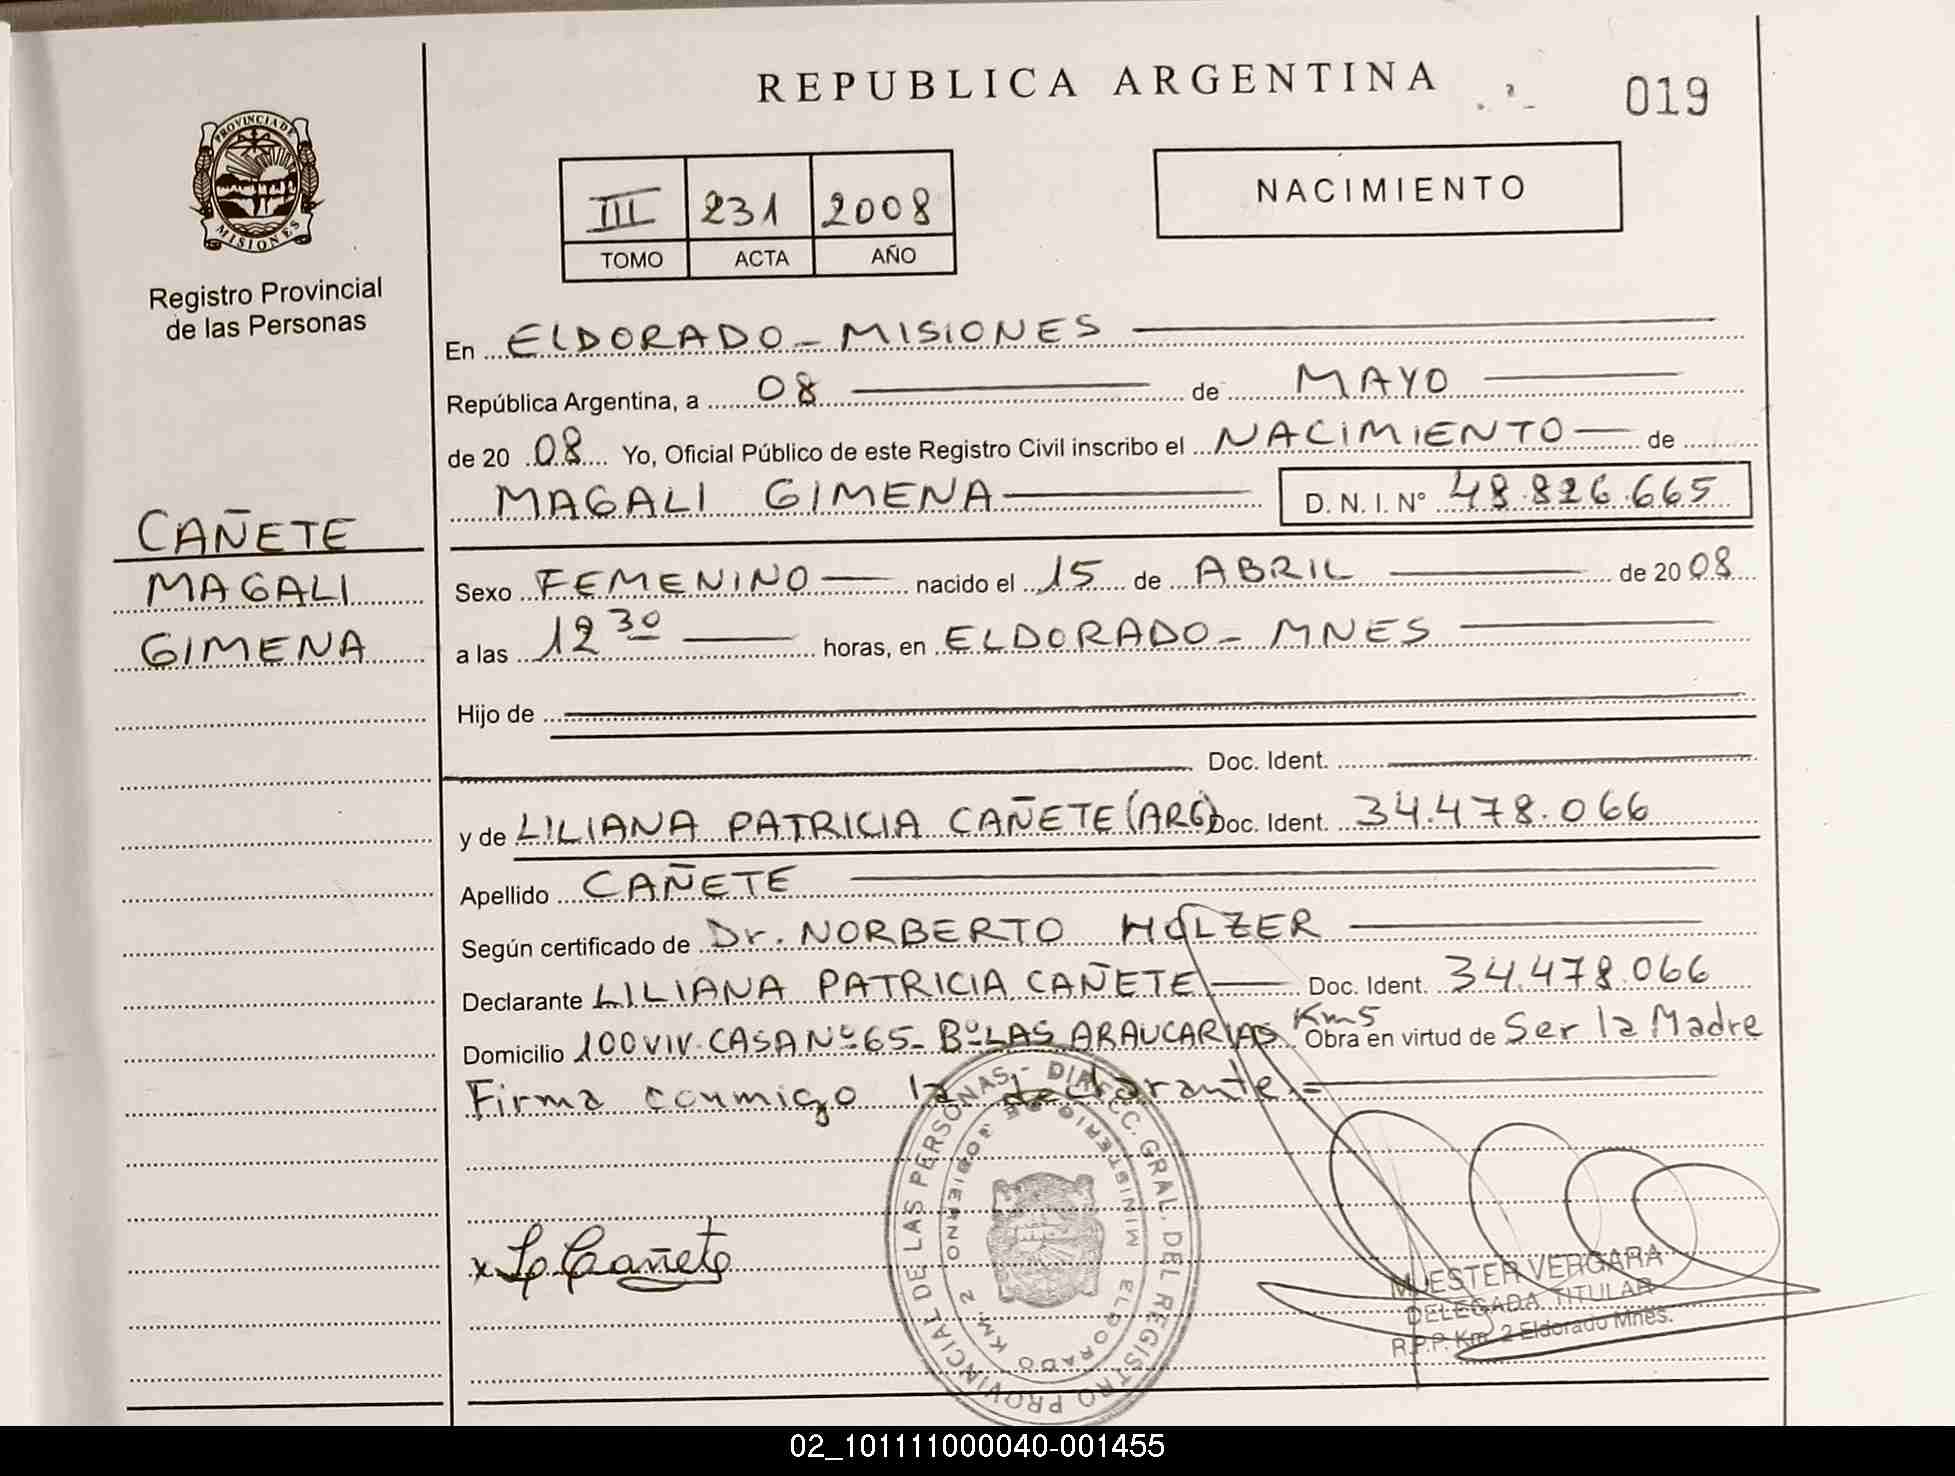 REPUBLICA ARGENTINA
019
PROVINCIA DE
MISIONES
Registro Provincial
de las Personas
III 231 2008
TOMO ACTA AÑO
NACIMIENTO
En ELDORADO - MISIONES
República Argentina, a 08 de MAYO
de 20 08 Yo, Oficial Público de este Registro Civil inscribo el NACIMIENTO de
MAGALI GIMENA D. N. I. N° 48.826.665
CAÑETE
MAGALI
GIMENA
Sexo FEMENINO nacido el 15 de ABRIL de 20 08
a las 12 30 horas, en ELDORADO - MNES
Hijo de
Doc. Ident.
y de LILIANA PATRICIA CAÑETE (ARG) Doc. Ident. 34.478.066
Apellido CAÑETE
Según certificado de Dr. NORBERTO HOLZER
Declarante LILIANA PATRICIA CAÑETE Doc. Ident. 34.478.066
Domicilio 100 VIV. CASA Nº 65 - Bº LAS ARAUCARIAS Km 5 Obra en virtud de Ser la Madre
Firma conmigo la declarante.=
x L P Cañete
REGISTRO PROVINCIAL DE LAS PERSONAS - DIRECC. GRAL. DEL
MINISTERIO DE GOBIERNO
ELDORADO KM. 2
ESTER VERGARA
DELEGADA TITULAR
R.P.P. Km. 2 Eldorado Mnes.
02_101111000040-001455